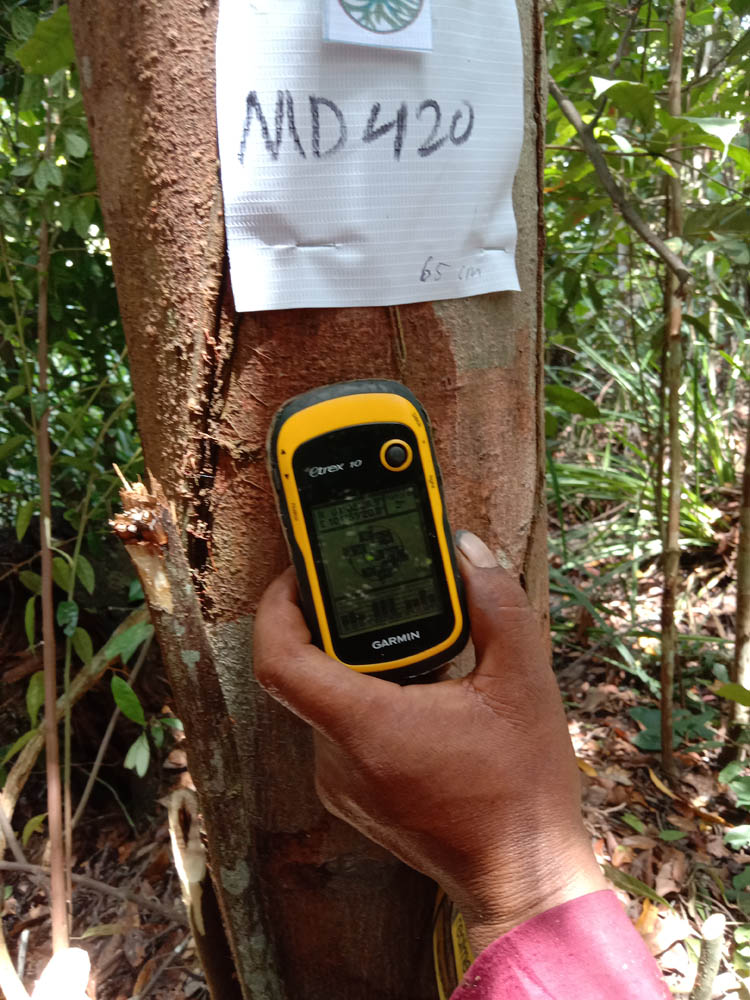 MD420
65 cm
etrex 10
GARMIN